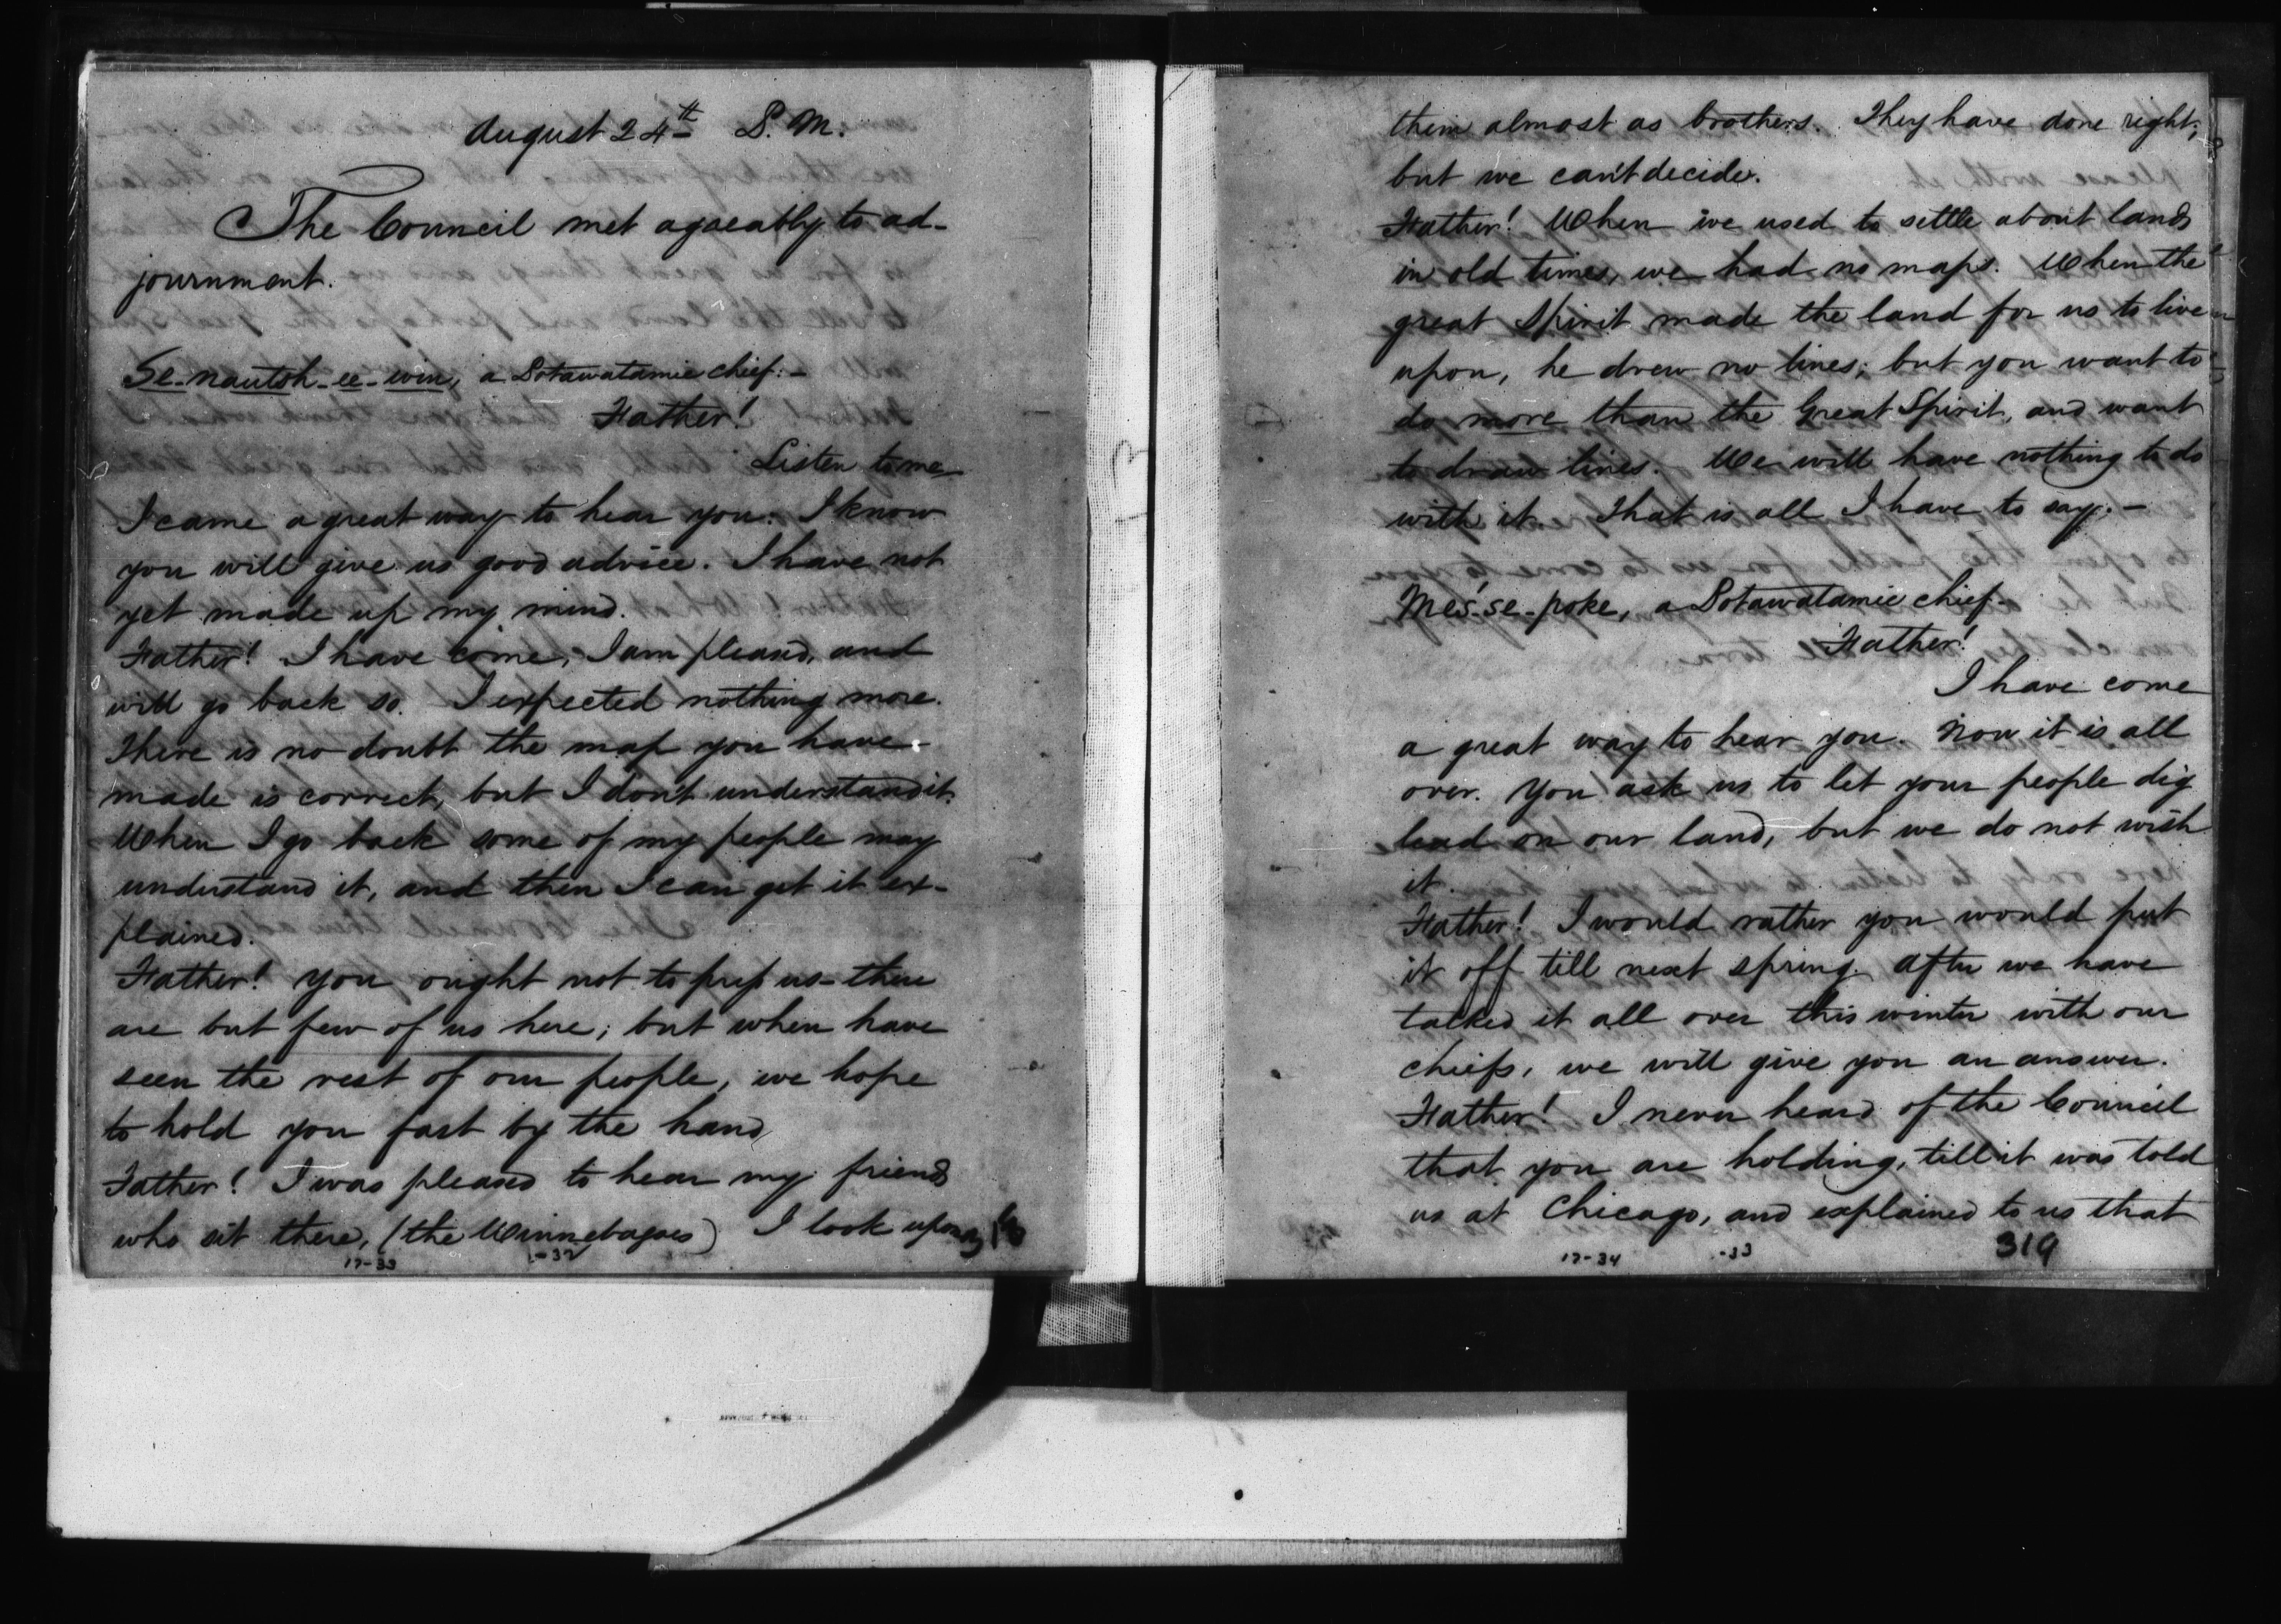 August 24th P.M.
The Council met agreeably to ad-
journment.
Se-nautsh-ee-win, a Potawatamie chief:-
Father!
Listen to me
I came a great way to hear you. I know
you will give us good advice. I have not
yet made up my mind.
Father! I have come, I am pleased, and
will go back so. I expected nothing more.
There is no doubt the map you have
made is correct, but I don't understand it.
When I go back some of my people may
understand it, and then I can get it ex-
plained.
Father! you ought not to press us - there
are but few of us here; but when have
seen the rest of our people, we hope
to hold you fast by the hand
Father! I was pleased to hear my friends
who sit there, (the Winnebagoes) I look upon
17-33 -32
them almost as brothers. They have done right;
but we can't decide.
Father! When we used to settle about lands
in old times, we had no maps. When the
great Spirit made the land for us to live
upon, he drew no lines; but you want to
do more than the Great Spirit, and want
to draw lines. We will have nothing to do
with it. That is all I have to say.-
Mes-se-poke, a Potawatamie chief-
Father!
I have come
a great way to hear you. Now it is all
over. You ask us to let your people dig
lead on our land, but we do not wish
it.
Father! I would rather you would put
it off till next spring. After we have
talked it all over this winter with our
chiefs, we will give you an answer.
Father! I never heard of the Council
that you are holding, till it was told
us at Chicago, and explained to us that
17-34 -33 319